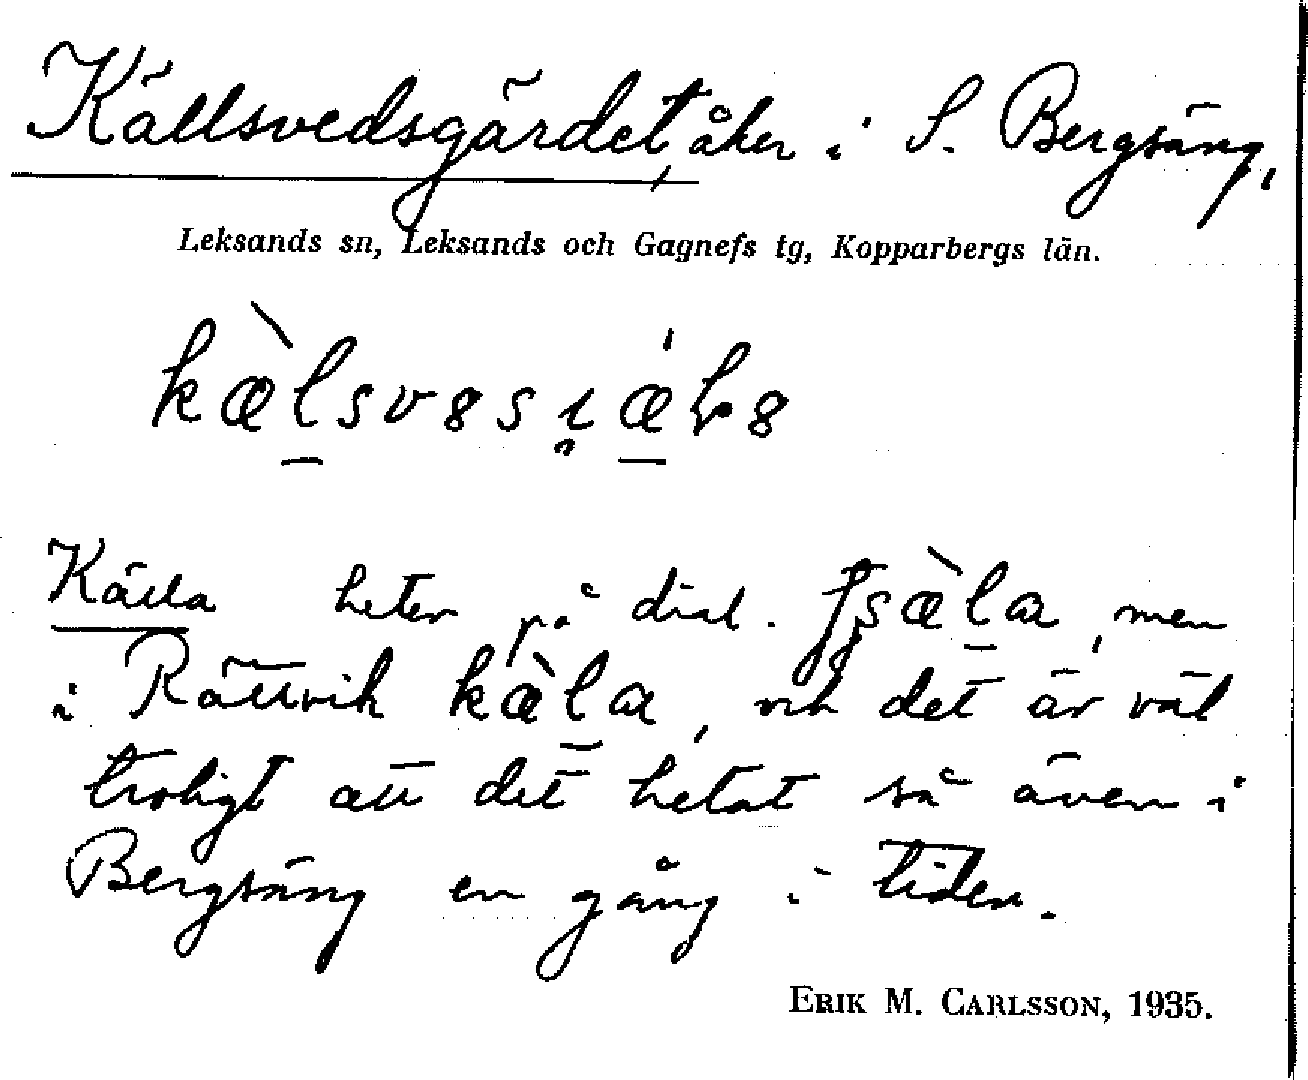 Källsvedsgärdet, åker i S. Bergsäng,
Leksands sn, Leksands och Gagnefs tg, Kopparbergs län.
Källa heter på dial. men
i Rättvik kæ̀la, och det är väl
troligt att det hetat så även i
Bergsäng en gång i tiden.
ERIK M. CARLSSON, 1935.